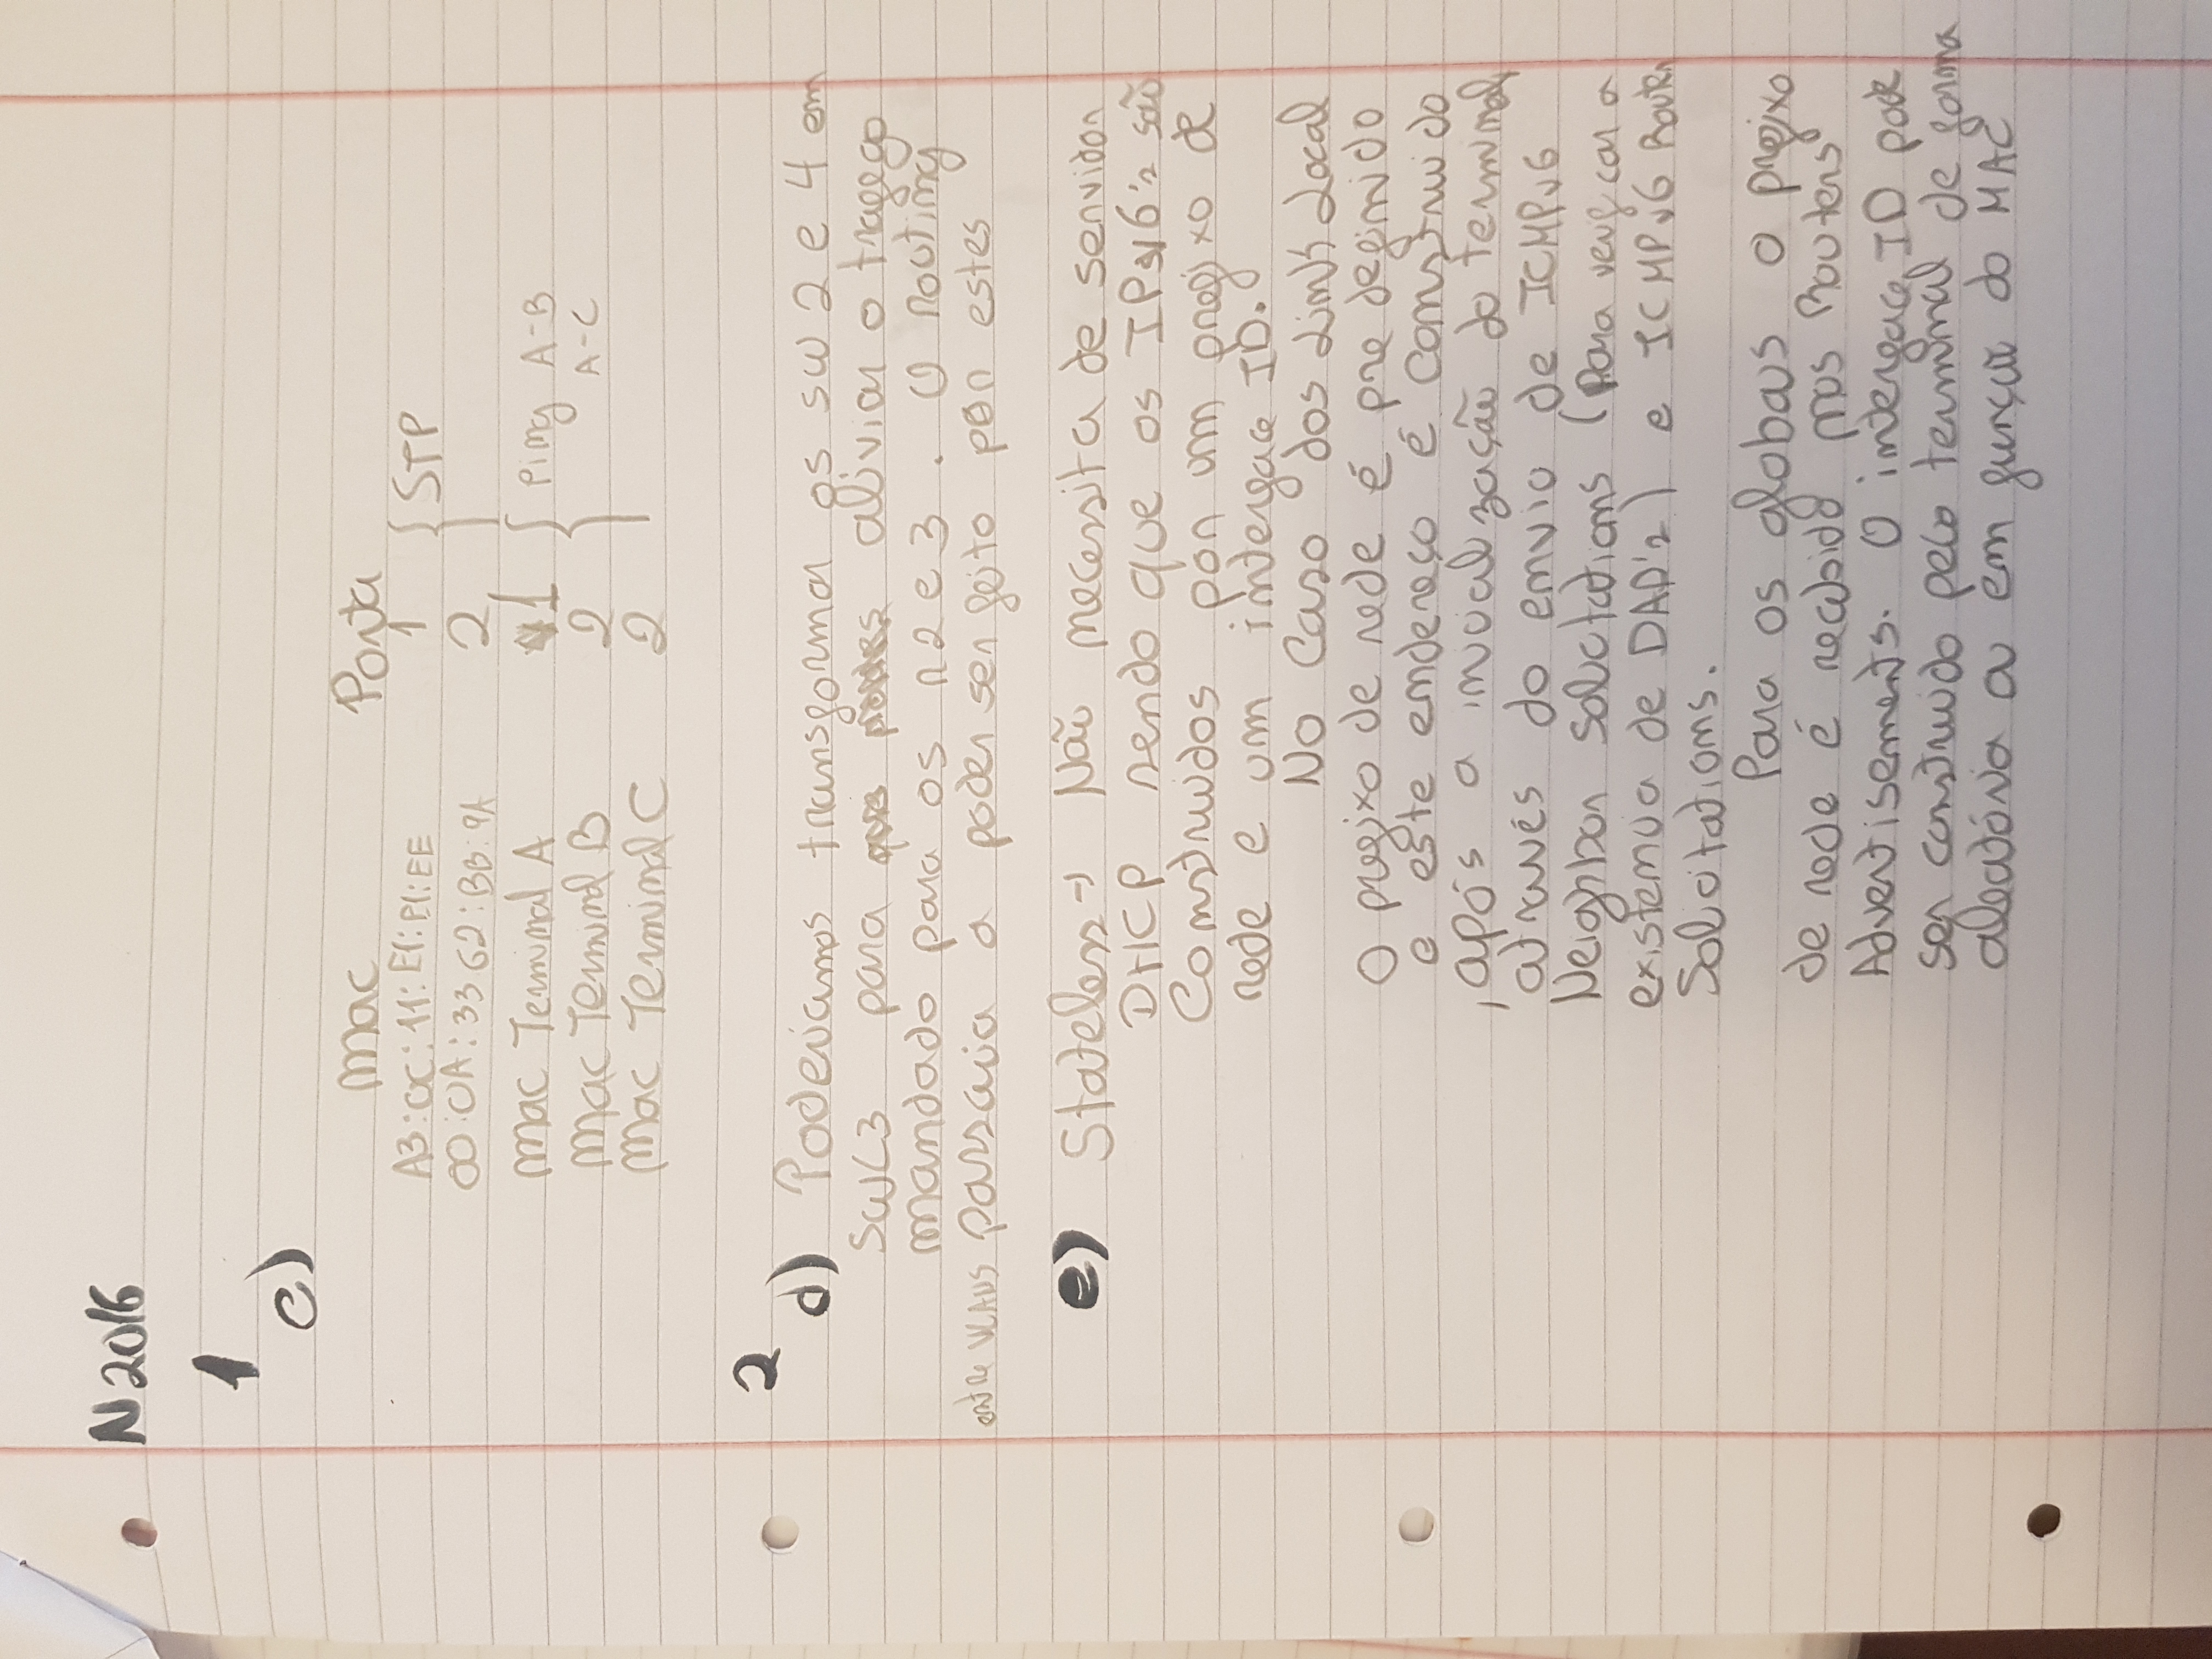 N 2016
1
c)
Mac Porta
A3:0C:11:E1:P1:EE 1 STP
00:0A:33 62:BB:9A 2
Mac Terminal A 1 Ping A-B
Mac Terminal B 2 A-C
Mac Terminal C 2
2
d) Poderiamos transformar os sw 2 e 4 em
SWL3 para aliviar o trafego
mandado para os r2 e 3. O routing
entre VLANS passaria a poder ser feito por estes
e) Stateless → Não necessita de servidor
DHCP sendo que os IPv6's são
Construidos por um prefixo de
rede e um interface ID.
No caso dos Link Local
o prefixo de rede é pre definido
e este endereço é construido
, após a inicialização do terminal,
através do envio de ICMPv6
Neighbor Solicitations (para verificar a
existencia de DAD's) e ICMPv6 Router
Solicitations.
Para os globais o prefixo
de rede é recebido nos Routers
Advertisements. O interface ID pode
ser construido pelo terminal de forma
aleatória ou em função do MAC